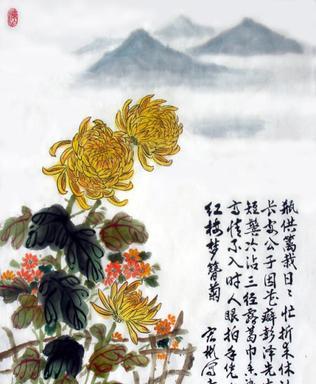 瓶供篱栽日々忙折来休
长安公子因花癖彭泽先
短鬓冷沾三径露葛巾香
高情不入时人眼拍手凭
红楼梦簪菊 宏彬写